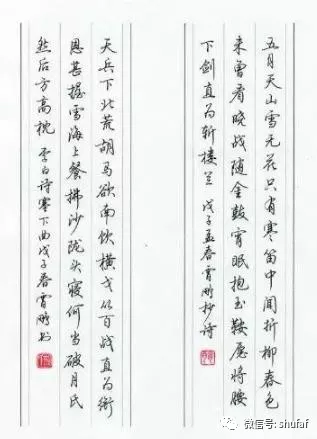 五月天山雪无花只有寒笛中闻折柳春色
未曾看晓战随金鼓宵眠抱玉鞍愿将腰
下剑直为斩楼兰 戊子孟春霄鹏抄诗
天兵下北荒胡马欲南饮横戈从百战直为衔
恩甚握雪海上餐拂沙陇头寝何当破月氏
然后方高枕 李白诗塞下曲戊子春霄鹏书
微信号: shufaf